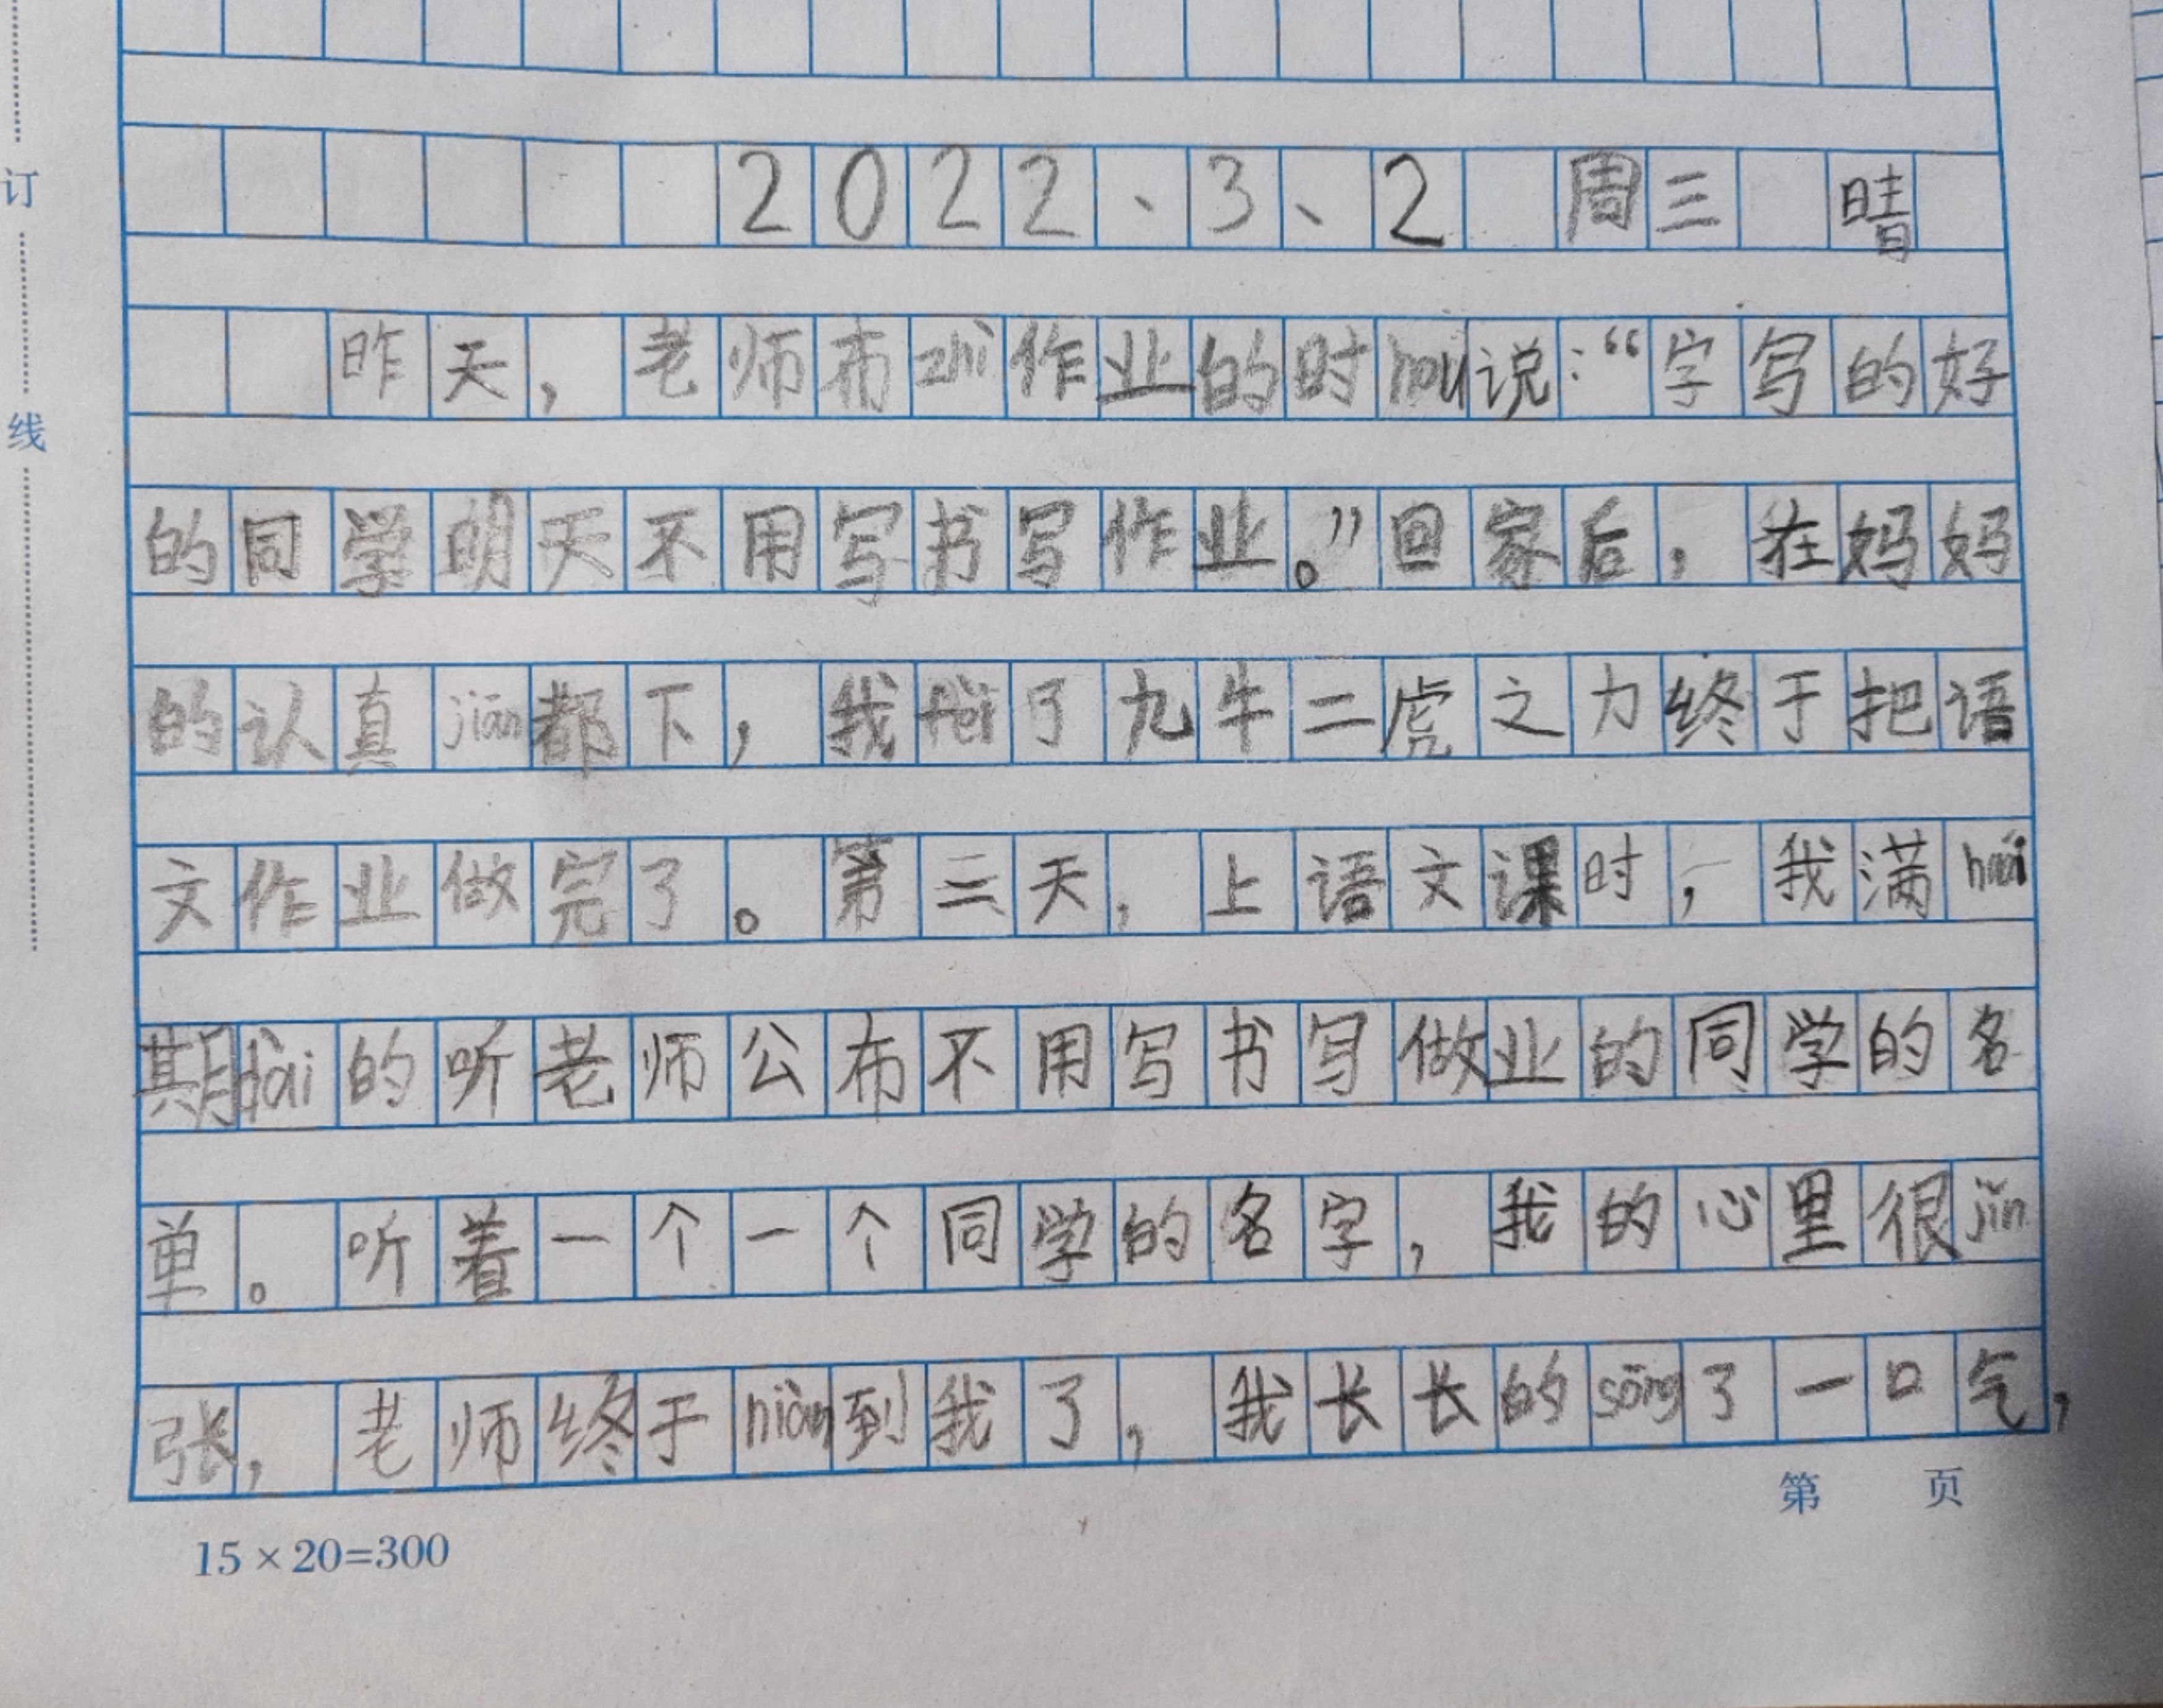 订
线
2022、3、2 周三 晴
昨天，老师布zhì作业的时hou说：“字写的好
的同学明天不用写书写作业。”回家后，在妈妈
的认真jiān都下，我fèi了九牛二虎之力终于把语
文作业做完了。第三天，上语文课时，我满huái
期dài的听老师公布不用写书写做业的同学的名
单。听着一个一个同学的名字，我的心里很jǐn
张，老师终于niàn到我了，我长长的sōng了一口气，
第 页
15×20=300